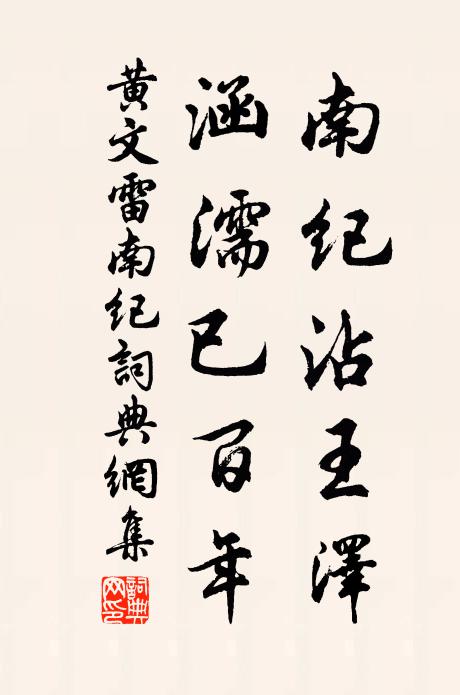 南纪沾王泽
涵濡已百年
黃文雷南纪詞典網集
詞典网印